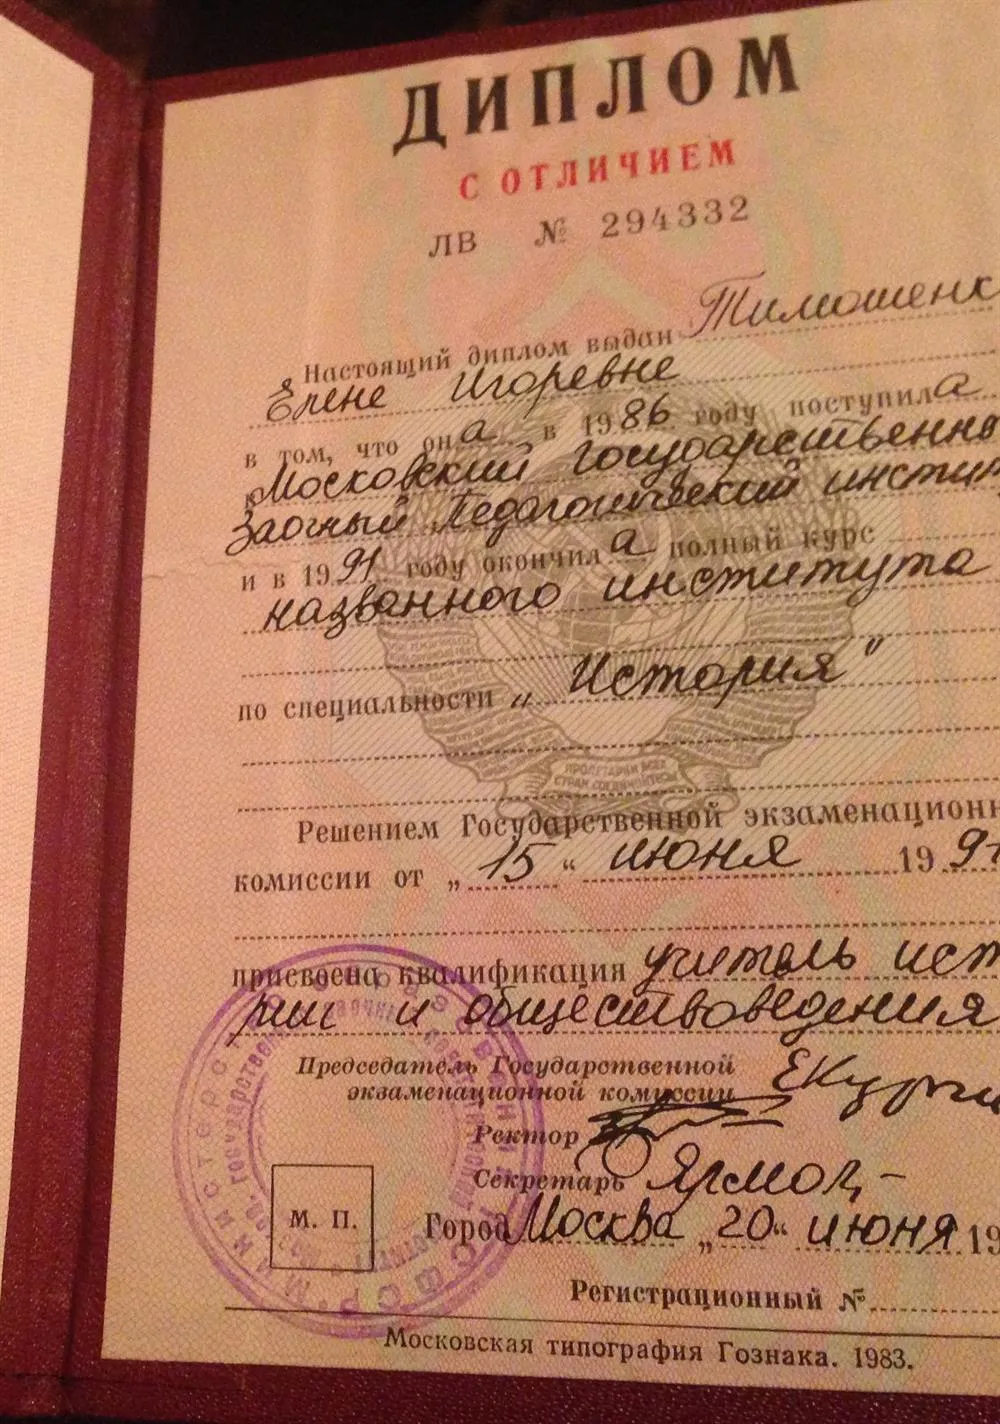 ДИПЛОМ
С ОТЛИЧИЕМ
ЛВ № 294332
Настоящий диплом выдан Тимошенк
Елене Игоревне
в том, что она в 1986 году поступила
в Московский государственно
Заочный Педагогический инстит
и в 1991 году окончила полный курс
названного института
по специальности „История"
Решением Государственной экзаменационн
комиссии от „15" июня 1991
присвоена квалификация учитель ист
рии и обществоведения
Председатель Государственной
экзаменационной комиссии
Ректор
Секретарь
М. П.
Город Москва „20" июня 19
Регистрационный №
Московская типография Гознака. 1983.
ПРОЛЕТАРИИ ВСЕХ
СТРАН СОЕДИНЯЙТЕСЬ